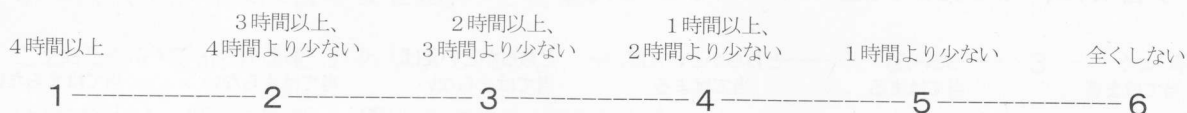 4時間以上
3時間以上、
4時間より少ない
2時間以上、
3時間より少ない
1時間以上、
2時間より少ない
1時間より少ない
全くしない
1 2 3 4 5 6